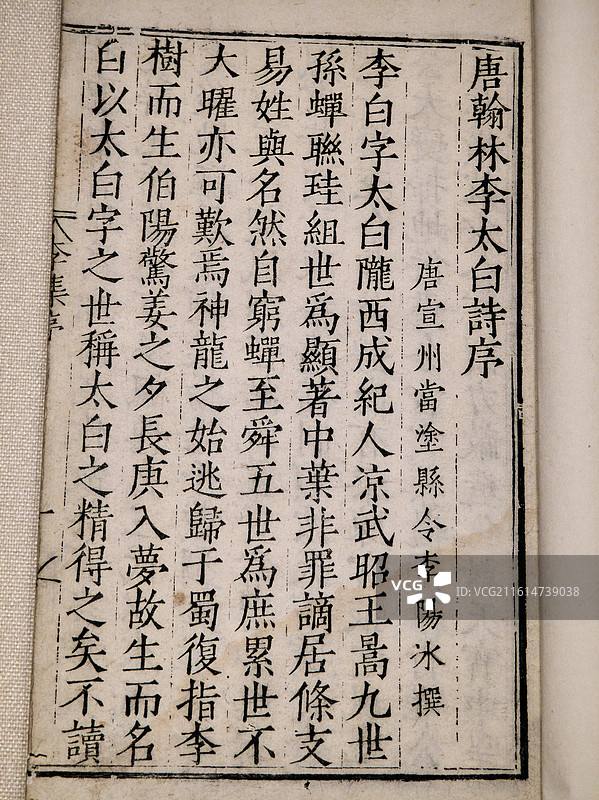 唐翰林李太白詩序
唐宣州當塗縣令李陽冰撰
李白字太白隴西成紀人涼武昭王暠九世
孫蟬聯珪組世為顯著中葉非罪謫居條支
易姓與名然自窮蟬至舜五世為庶累世不
大曜亦可歎焉神龍之始逃歸于蜀復指李
樹而生伯陽驚姜之夕長庚入夢故生而名
白以太白字之世稱太白之精得之矣不讀
集序
VCG
ID:VCG211614739038